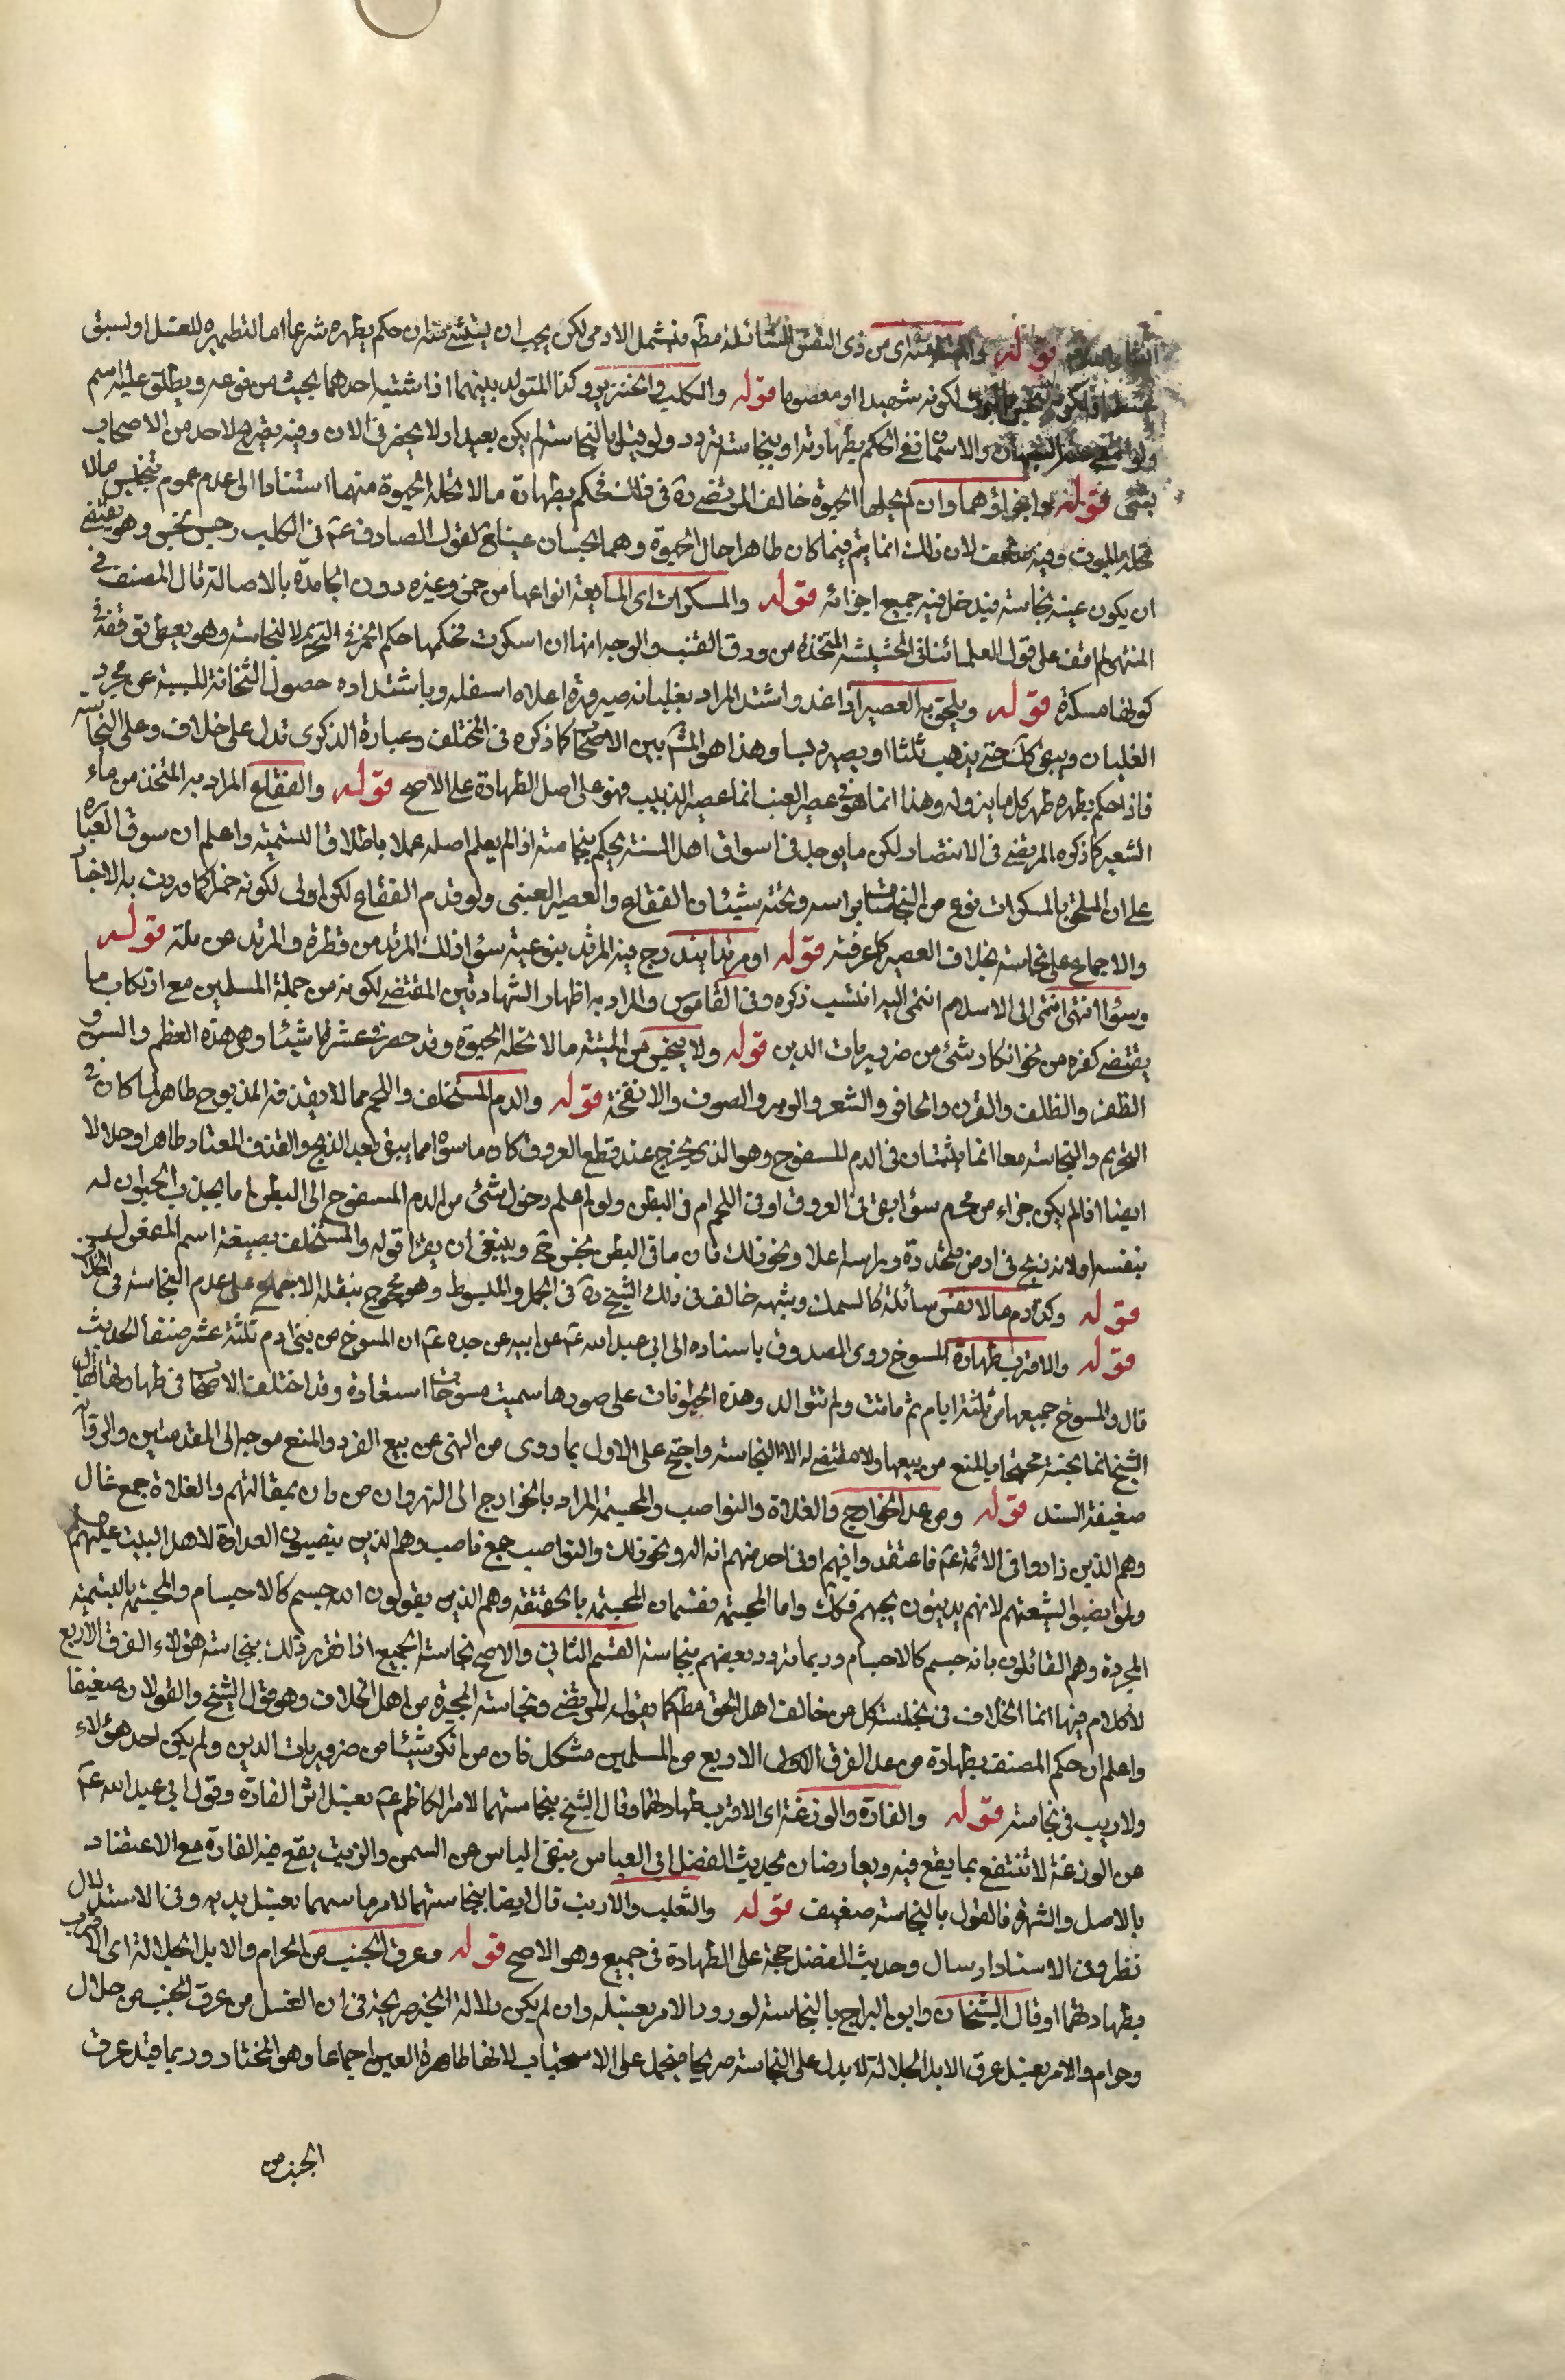 قوله والميتة منه اى من ذى النفس السائلة مطلقا فيشمل الادمى لكن يجب ان يستثنى منه ان حكم بطهره شرعا اما لتطهيره للغسل او لسبق
لكونه شهيدا او معصوما قوله والكلب والخنزير وكذا المتولد بينهما اذا اشتبه احدهما بحيث من نوعه ويطلق عليه اسم
ولو انتفى عنه الاسمان ففى الحكم بطهارته او نجاسته تردد ولو قيل بالنجاسة لم يكن بعيدا ولا يحضرنى الان وفيه تصريح لاحد من الاصحاب
بشئ قوله واجزاؤهما وان لم تحلها الحيوة خالف المرتضى ره فى ذلك فحكم بطهارة ما لا تحله الحيوة منهما استنادا الى عدم عموم تنجيس ما لا
تحله بالموت وفيه ضعف لان ذلك انما يتم فيما كان طاهرا حال الحيوة وهما نجسان عينا مع لقول الصادق عم فى الكلب رجس نجس وهو يقتضى
ان يكون عينه نجاسة فيدخل فيه جميع اجزائه قوله والمسكرات اى المايعة انواعها من خمر وغيره دون الجامدة بالاصالة قال المصنف فى
المنتهى لم اقف على قول لعلمائنا فى الحشيشة المتخذة من ورق القنب والوجه انها ان اسكرت فحكمها حكم الخمر فى التحريم لا النجاسة وهو يعطى توقفه فى
كونها مسكرة قوله ويلحق به العصير اذا غلا واشتد المراد بغليانه صيرورة اعلاه اسفله وباشتداده حصول الثخانة المسببة عن مجرد
الغليان ويبقى كك حتى يذهب ثلثاه او يصير دبسا وهذا هو المشهور بين الاصحاب كما ذكره فى المختلف وعبارة الذكرى تدل على خلاف وعلى النجاسة
فاذا حكم بطهره طهر كل ما يزوله وهذا انما هو فى عصير العنب اما عصير الزبيب فهو على اصل الطهارة على الاصح قوله والفقاع المراد به المتخذ من ماء
الشعير كما ذكره المرتضى فى الانتصار لكن ما يوجد فى اسواق اهل السنة يحكم بنجاسته اذا لم يعلم اصله عملا باطلاق التسمية واعلم ان سوق العبارة
على ان الملحق بالمسكرات نوع من النجاسات براسه وتحته شيئان الفقاع والعصير العنبى ولو قدم الفقاع لكان اولى لكونه خمرا كما وردت به الاخبار
والاجماع على نجاسته بخلاف العصير كما عرفته قوله او مرتدا يندرج فيه المرتد بنوعيه سواء ذلك المرتد من فطرة والمرتد عن ملة قوله
وسواء انتمى الى الاسلام انتمى اليه انتسب ذكره فى القاموس والمراد به اظهار الشهادتين المقتضى لكونه من جملة المسلمين مع ارتكاب ما
يقتضى كفره من نحو انكار شئ من ضروريات الدين قوله ولا ينجس من الميتة ما لا تحله الحيوة وقد حصر فى عشرة اشياء وهى هذه العظم والسن و
الظفر والظلف والقرن والحافر والشعر والوبر والصوف والانفحة قوله والدم المستخلف واللحم مما لا يقذفه المذبوح طاهر لما كان فى
التحريم والنجاسة معا انما يثبتان فى الدم المسفوح وهو الذى يخرج عند قطع العروق كان ما سواه مما يبقى بعد الذبح والقذف المعتاد طاهرا وحلالا
ايضا اذا لم يكن جزاء من محرم سواء بقى فى العروق او فى اللحم ام فى البطن ولو علم دخول شئ من الدم المسفوح الى البطن اما بجذب الحيوان له
بنفسه او لانه ذبح فى ارض منحدرة وراسه اعلا ونحو ذلك فان ما فى البطن نجس ح وينبغى ان يقرا قوله والمستخلف بصيغة اسم المفعول
قوله وكذا دم ما لا نفس سائلة كالسمك وشبهه خالف فى ذلك الشيخ ره فى الجمل والمبسوط وهو محجوج بنقله الاجماع على عدم النجاسة فى الخلاف
قوله والاقرب طهارة المسوخ روى الصدوق باسناده الى ابى عبد الله عم عن ابيه عن جده عم ان المسوخ من بنى ادم ثلثة عشر صنفا الحديث
قال والمسوخ جميعها لم تبق ثلثة ايام ثم ماتت ولم تتوالد وهذه الحيوانات على صورها سميت مسوخا استعارة وقد اختلف الاصحاب فى طهارتها فقال
الشيخ انها نجسة محتجا بالمنع من بيعها ولا مقتضى له الا النجاسة واحتج على الاول بما روى من النهى عن بيع القرد والمنع موجه الى المقدمتين والرواية
ضعيفة السند قوله ومن عدا الخوارج والغلاة والنواصب والمجسمة المراد بالخوارج اهل النهروان من دان بمقالتهم والغلاة جمع غال
وهم الذين زادوا فى الائمة عم فاعتقدوا فيهم او فى احد منهم انه اله ونحو ذلك والنواصب جمع ناصب وهم الذين ينصبون العداوة لاهل البيت عليهم السلم
ولو نصبوا لشيعتهم لانهم يدينون بحبهم فكك واما المجسمة فقسمان المجسمة بالحقيقة وهم الذين يقولون الله جسم كالاجسام والمجسمة بالتسمية
المجردة وهم القائلون بانه جسم لا كالاجسام وربما تردد بعضهم بنجاسة القسم الثانى والاصح نجاسة الجميع اذا تقرر ذلك بنجاسة هؤلاء الفرق الاربع
لا كلام فيها انما الخلاف فى نجاسة كل من خالف اهل الحق مطلقا كما يقوله المرتضى ونجاسة المجبرة من اهل الخلاف وهو قول الشيخ والقولان ضعيفان
واعلم ان حكم المصنف بطهارة من عدا الفرق الاربع من المسلمين مشكل فان من انكر شيئا من ضروريات الدين ولم يكن احد هؤلاء
ولا ريب فى نجاسته قوله والفارة والوزغة اى الاقرب طهارتهما وقال الشيخ بنجاستهما لامر الكاظم عم بغسل اثر الفارة وقول ابى عبد الله عم
عن الوزغة لا تنتفع بما يقع فيه ويعارضان بحديث الفضل ابى العباس بنفى الباس عن السمن والزيت يقع فيه الفارة مع الاعتضاد
بالاصل والشهرة فالقول بالنجاسة ضعيف قوله والثعلب والارنب قال ايضا بنجاستهما لامر ماسهما بغسل يديه وفى الاستدلال
نظر وفى الاسناد ارسال وحديث الفضل حجة على الطهارة فى جميع وهو الاصح قوله وعرق الجنب من الحرام والابل الجلالة اى الاقرب
طهارتهما وقال الشيخان وابن البراج بالنجاسة لورود الامر بغسله وان لم يكن دلالة الخبر صريحة فى ان الغسل من عرق الجنب من حلال
وحرام والامر بغسل عرق الابل الجلالة لا يدل على النجاسة صريحا فيحمل على الاستحباب لانها طاهرة العين اجماعا وهو المختار وربما قيد عرق
الجنب من